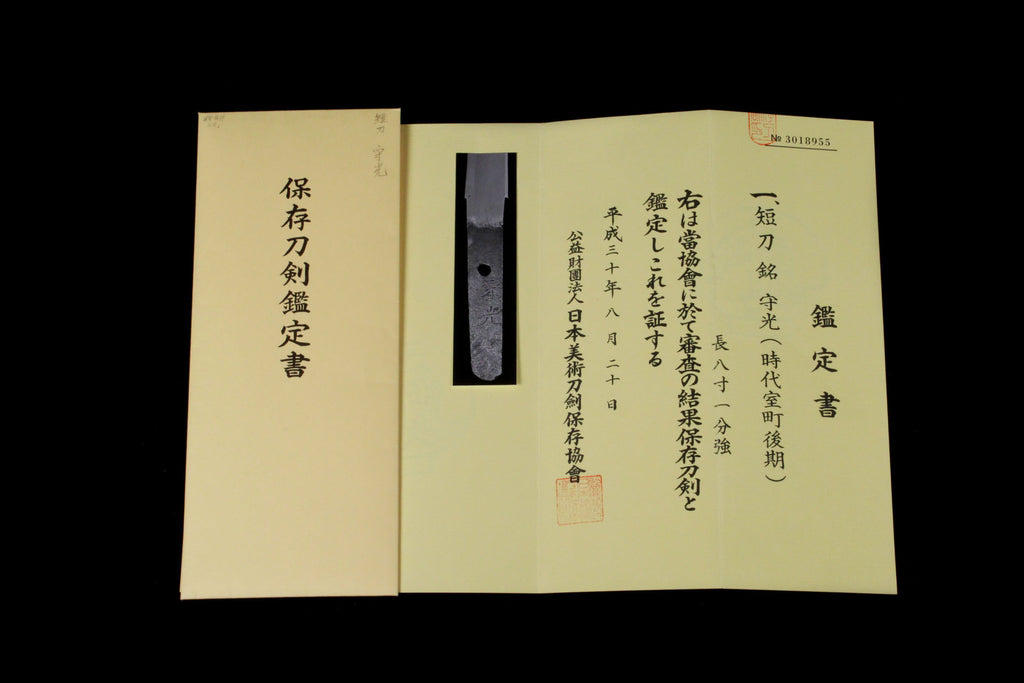 保存刀剣鑑定書
短刀 守光
№ 3018955
鑑定書
一、短刀 銘 守光(時代室町後期)
長八寸一分強
右は當協會に於て審査の結果保存刀剣と
鑑定しこれを証する
平成三十年八月二十日
公益財團法人日本美術刀劍保存協會
守光